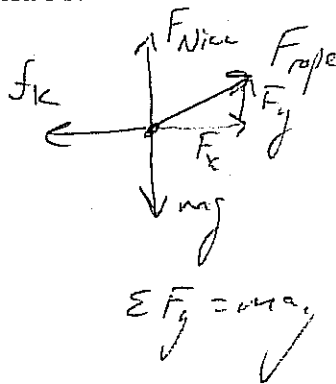 F_Nice
F_rope
f_k
F_y
F_x
mg
Σ F_y = ma_y